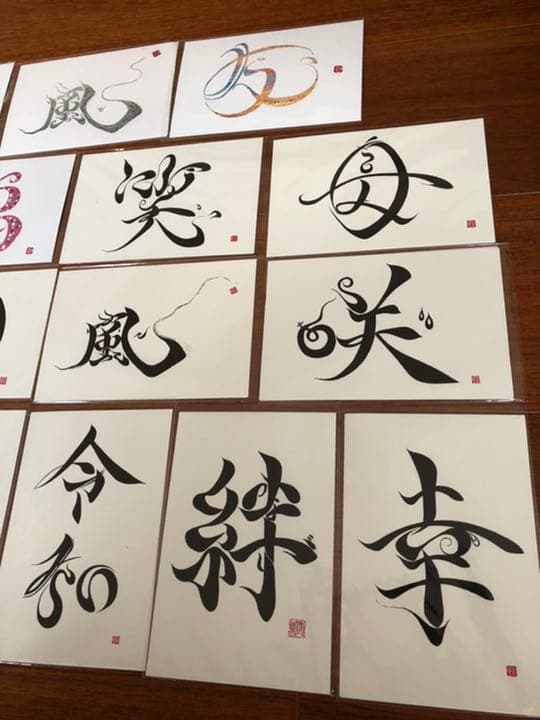 風
友
笑
母
風
咲
令和
絆
幸